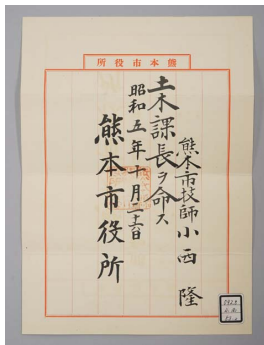 熊本市役所
熊本市技師 小西 隆
土木課長ヲ命ス
昭和五年十月二十六日
熊本市役所